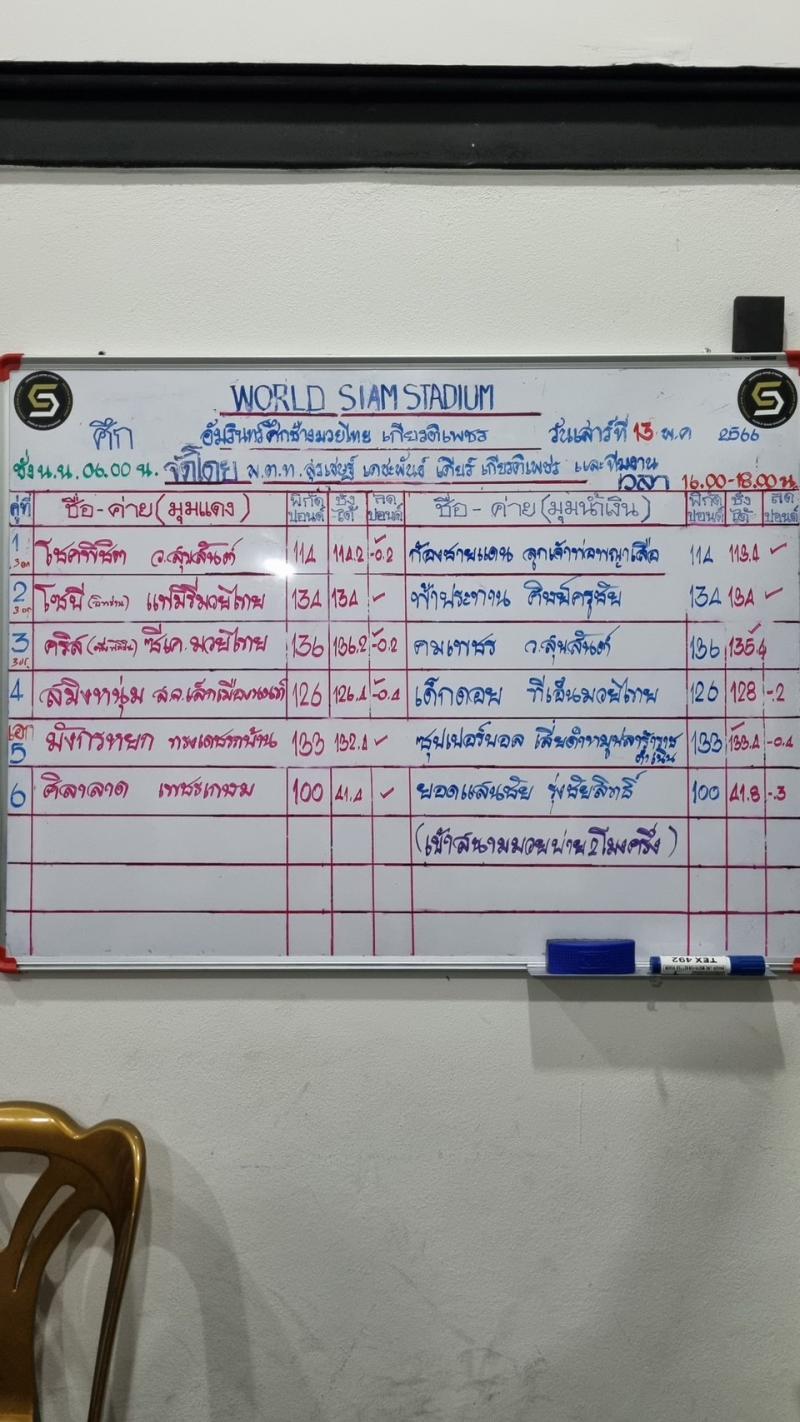 WORLD SIAM STADIUM
ศึก อัมรินทร์ศึกช้างมวยไทย เกียรติเพชร วันเสาร์ที่ 13 พ.ค 2566
ชั่ง น.น. 06.00 น. จัดโดย พ.ต.ท. สุรเชษฐ์ เตชะพันธ์ เกียรติเพชร และทีมงาน
เวลา 16.00-18.00 น.
คู่ที่ ชื่อ-ค่าย (มุมแดง) พิกัด ปอนด์ ชั่ง ได้ ลด ปอนด์ ชื่อ-ค่าย (มุมน้ำเงิน) พิกัด ปอนด์ ชั่ง ได้ ลด ปอนด์
1 โชคพิชิต ว.สุขสันต์ 114 114.2 -0.2 ก้องชายแดน ลูกเจ้าพ่อพญาเสือ 114 113.4 ✓
2 แฟมิรี่มวยไทย 134 134 ✓ ฟ้าประทาน ศิษย์ครูชัย 134 134 ✓
3 คริส ซีเค.มวยไทย 136 136.2 -0.2 คมเพชร ว.สุขสันต์ 136 135.4
4 สมิงหนุ่ม ส.จ.เล็กเมืองนนท์ 126 126.4 -0.4 เด็กดอย ทีเอ็นมวยไทย 126 128 -2
เอก
5 มังกรหยก 133 132.4 ✓ ซุปเปอร์บอล 133 133.4 -0.4
6 ศิลาลาด เพชรเกษม 100 41.4 ✓ ยอดแสนชัย รุ่งชัยสิทธิ์ 100 41.8 -.3
(เข้าสนามมวยบ่าย 2 โมงครึ่ง)
TEX 492